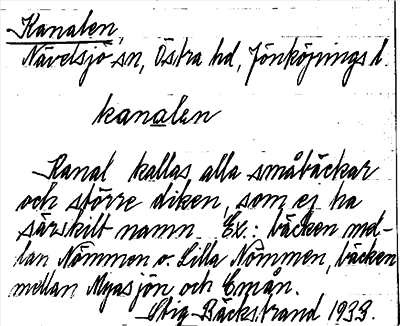 Kanalen,
Nävelsjö sn, Östra hd, Jönköpings l.
kanalen
Kanal kallas alla småbäckar
och större diken, som ej ha
särskilt namn. Ex.: bäcken mel-
lan Nömmen o. Lilla Nömmen, bäcken
mellan Myasjön och Emån.
Stig Bäckstrand 1933.